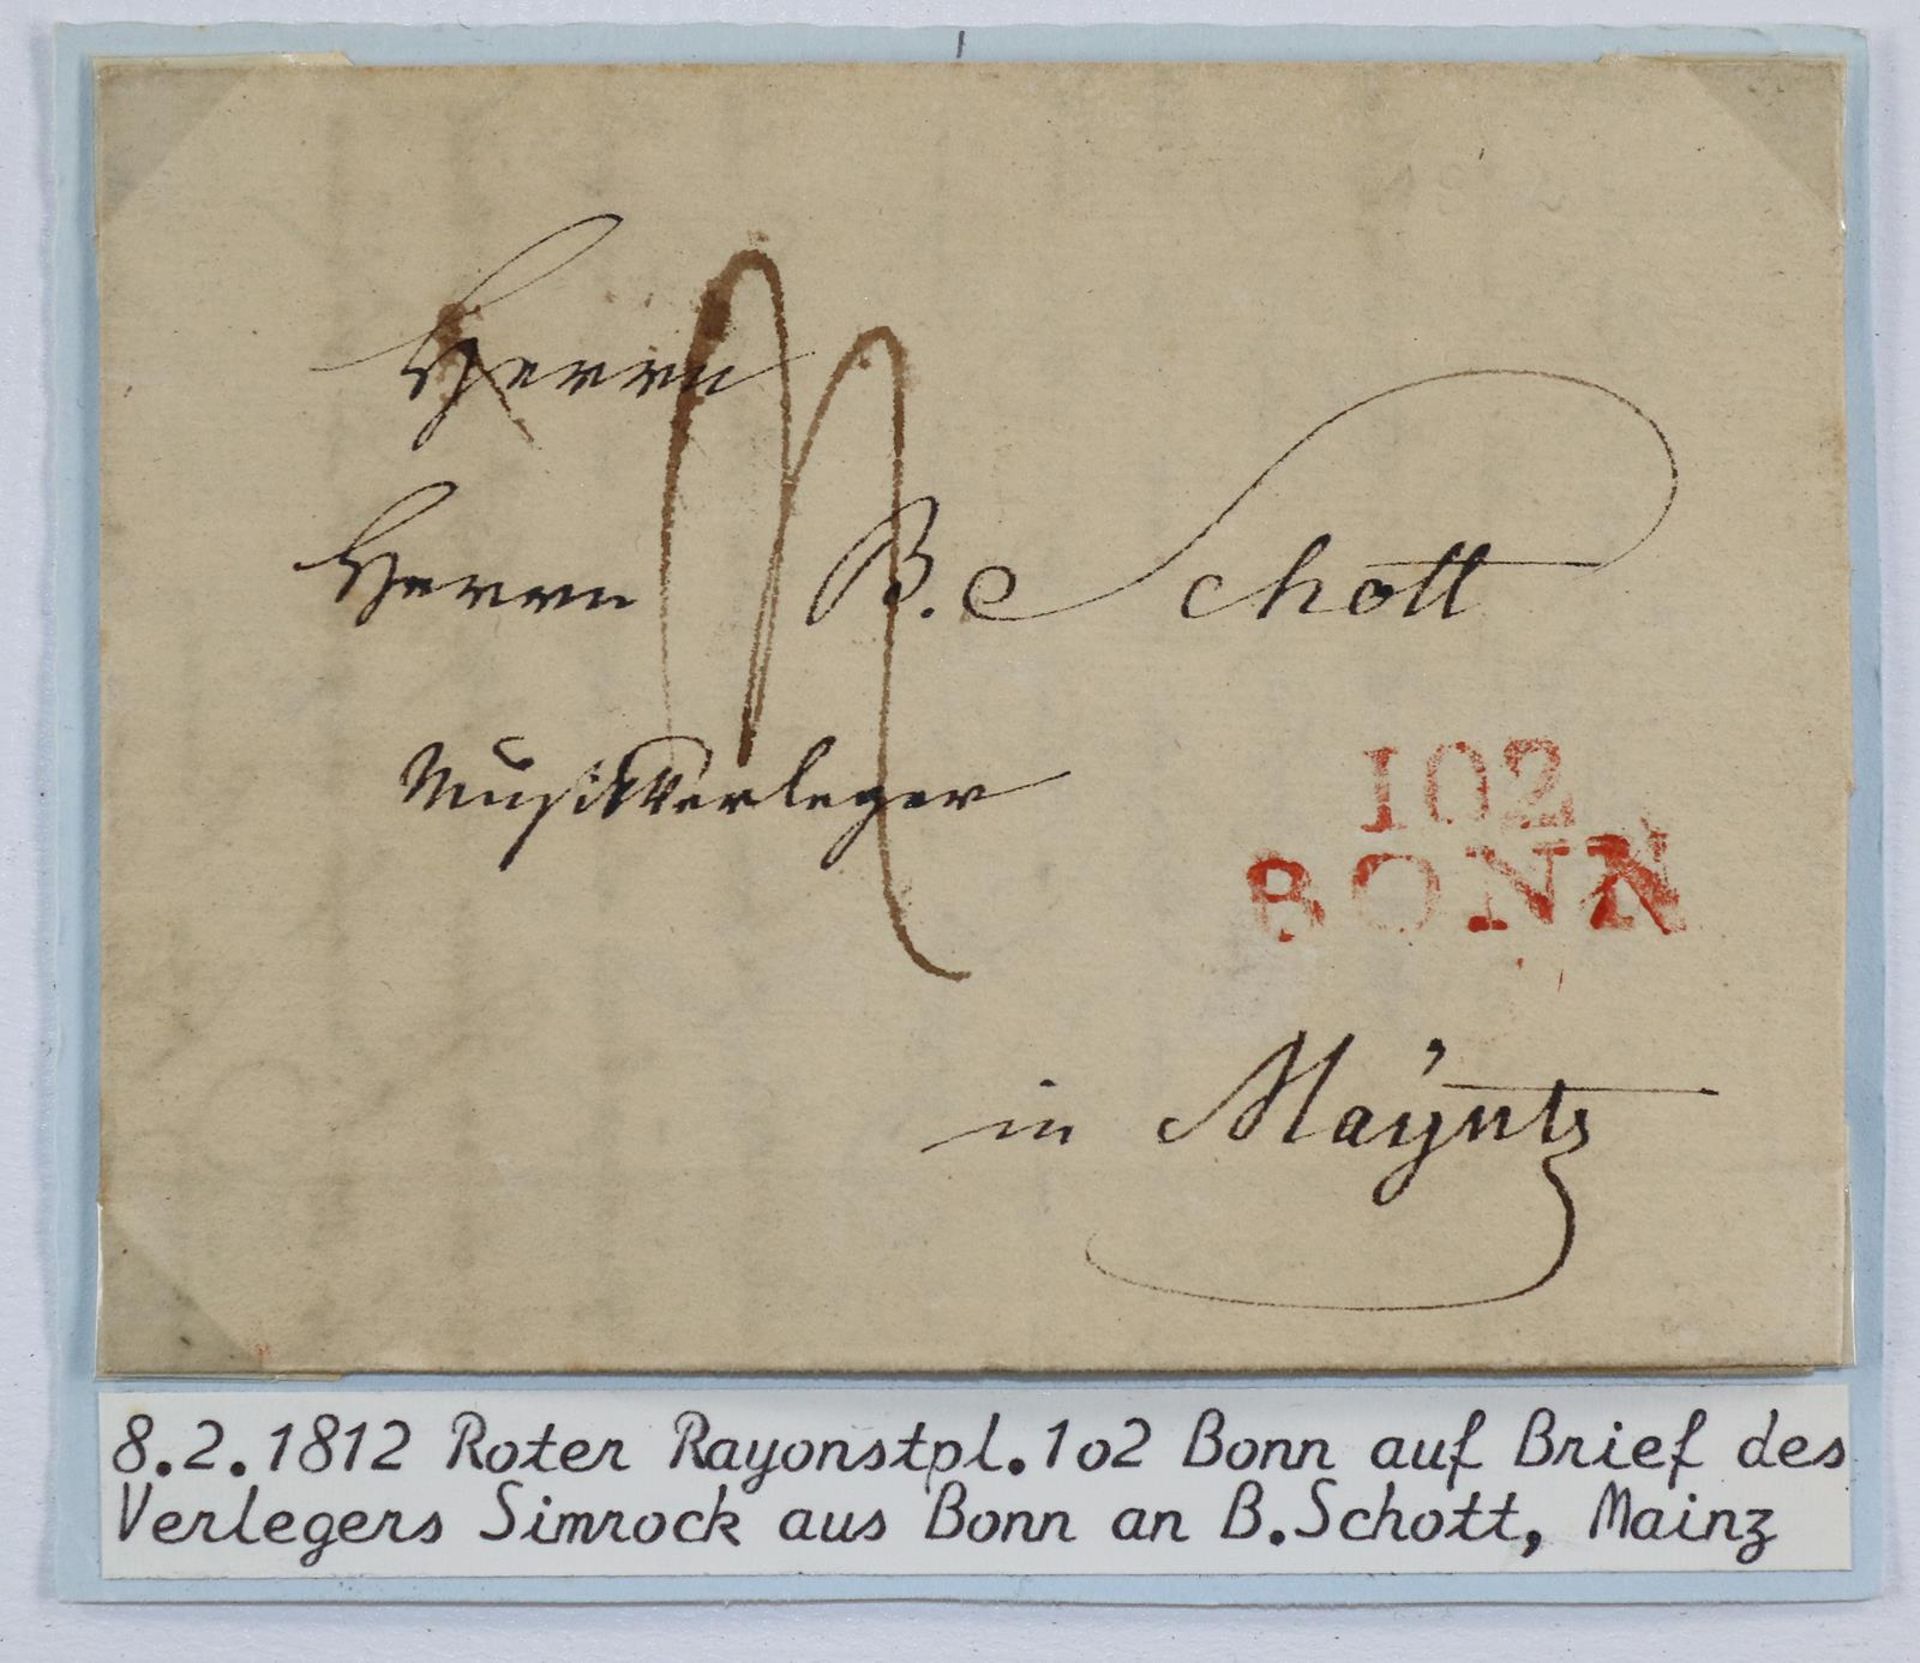 Herrn
Herrn B. Schott
Musikverleger
102
BONN
in Maÿntz
8.2.1812 Roter Rayonstpl.1o2 Bonn auf Brief des
Verlegers Simrock aus Bonn an B.Schott, Mainz